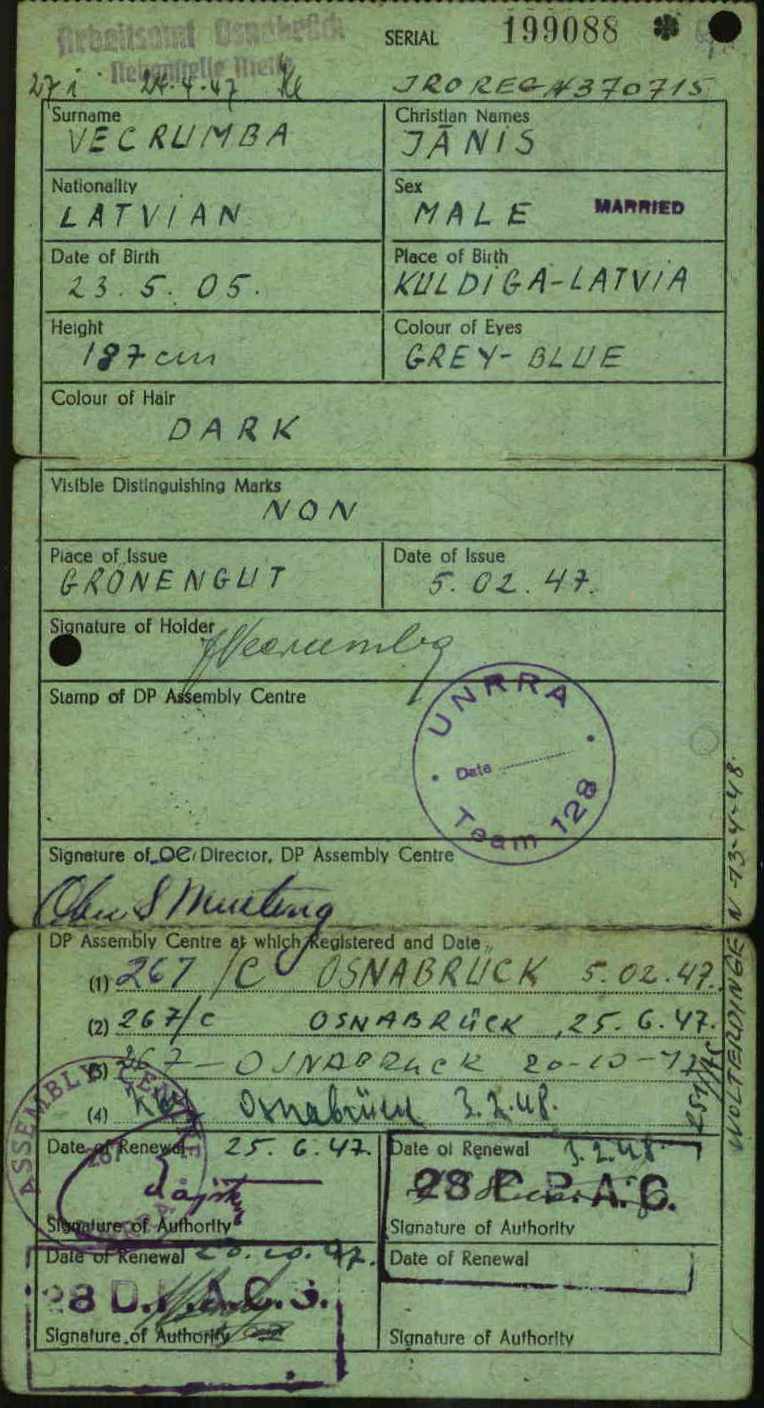 Arbeitsamt Osnabrück
Nebenstelle Melle
SERIAL 199088
24.4.47
IRO REG N 370715
Surname
VECRUMBA
Christian Names
JĀNIS
Nationality
LATVIAN
Sex
MALE MARRIED
Date of Birth
23.5.05.
Place of Birth
KULDIGA-LATVIA
Height
187 cm
Colour of Eyes
GREY-BLUE
Colour of Hair
DARK
Visible Distinguishing Marks
NON
Place of Issue
GRÖNENGUT
Date of Issue
5.02.47.
Signature of Holder
JVecrumba
Stamp of DP Assembly Centre
UNRRA
Date
Team 128
Signature of OC/Director, DP Assembly Centre
DP Assembly Centre at which Registered and Date
(1) 267/C OSNABRÜCK 5.02.47.
(2) 267/C OSNABRÜCK 25.6.47.
(3) 267 - OSNABRÜCK 20-10-47
(4) Osnabrück 3.2.48.
WOLTERDINGEN -13-4-48.
ASSEMBLY CENTRE
267
Date of Renewal 25.6.47.
Signature of Authority
Date of Renewal 3.2.48
28 D.P.A.C.
Signature of Authority
Date of Renewal 20.10.47.
28 D.P.A.C.S.
Signature of Authority
Date of Renewal
Signature of Authority